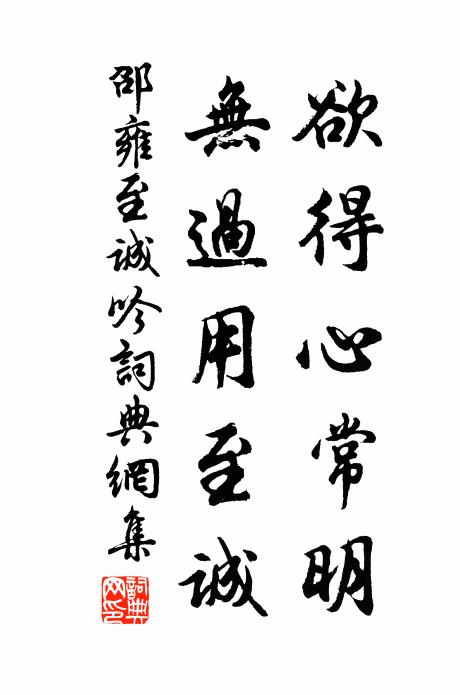 欲得心常明
無過用至誠
邵雍至誠吟詞典網集
詞典網印